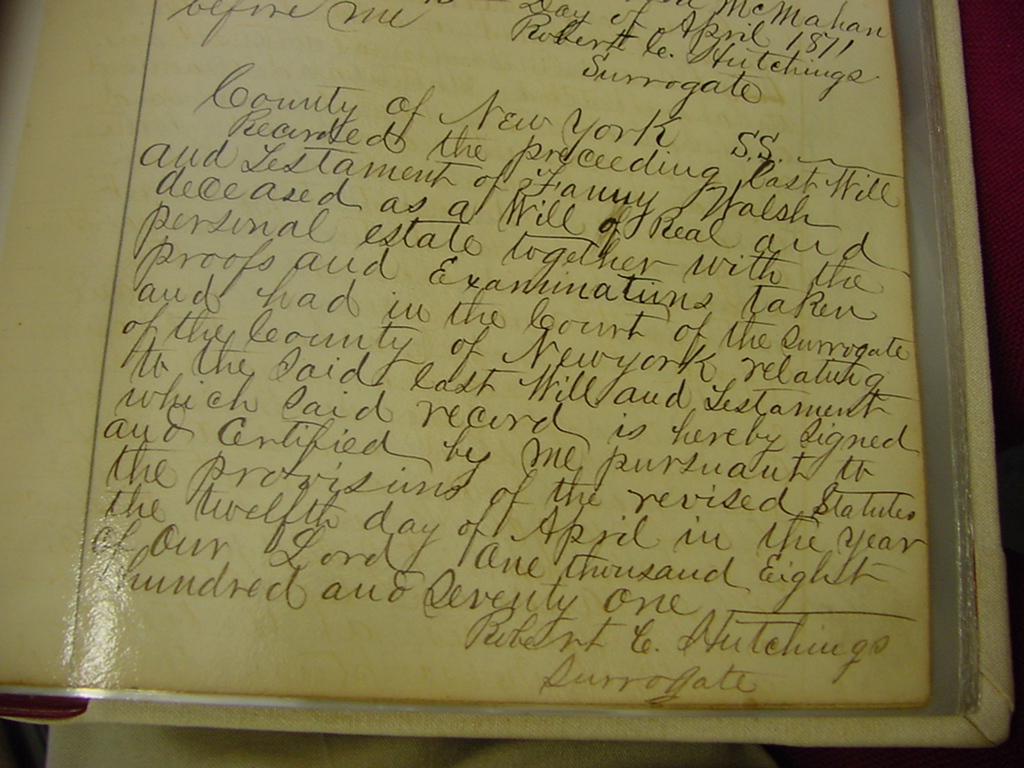 McMahan
before me Day of April 1871
Robert C. Hutchings
Surrogate
County of New York S.S.
Recorded the preceeding Last Will
and Testament of Fanny Walsh
deceased as a Will of Real and
personal estate together with the
proofs and Examinations taken
and had in the Court of the Surrogate
of the County of New York relating
to the Said Last Will and Testament
which Said record is hereby Signed
and Certified by me pursuant to
the provisions of the revised Statutes
the twelfth day of April in the year
of Our Lord One thousand Eight
hundred and Seventy One
Robert C. Hutchings
Surrogate